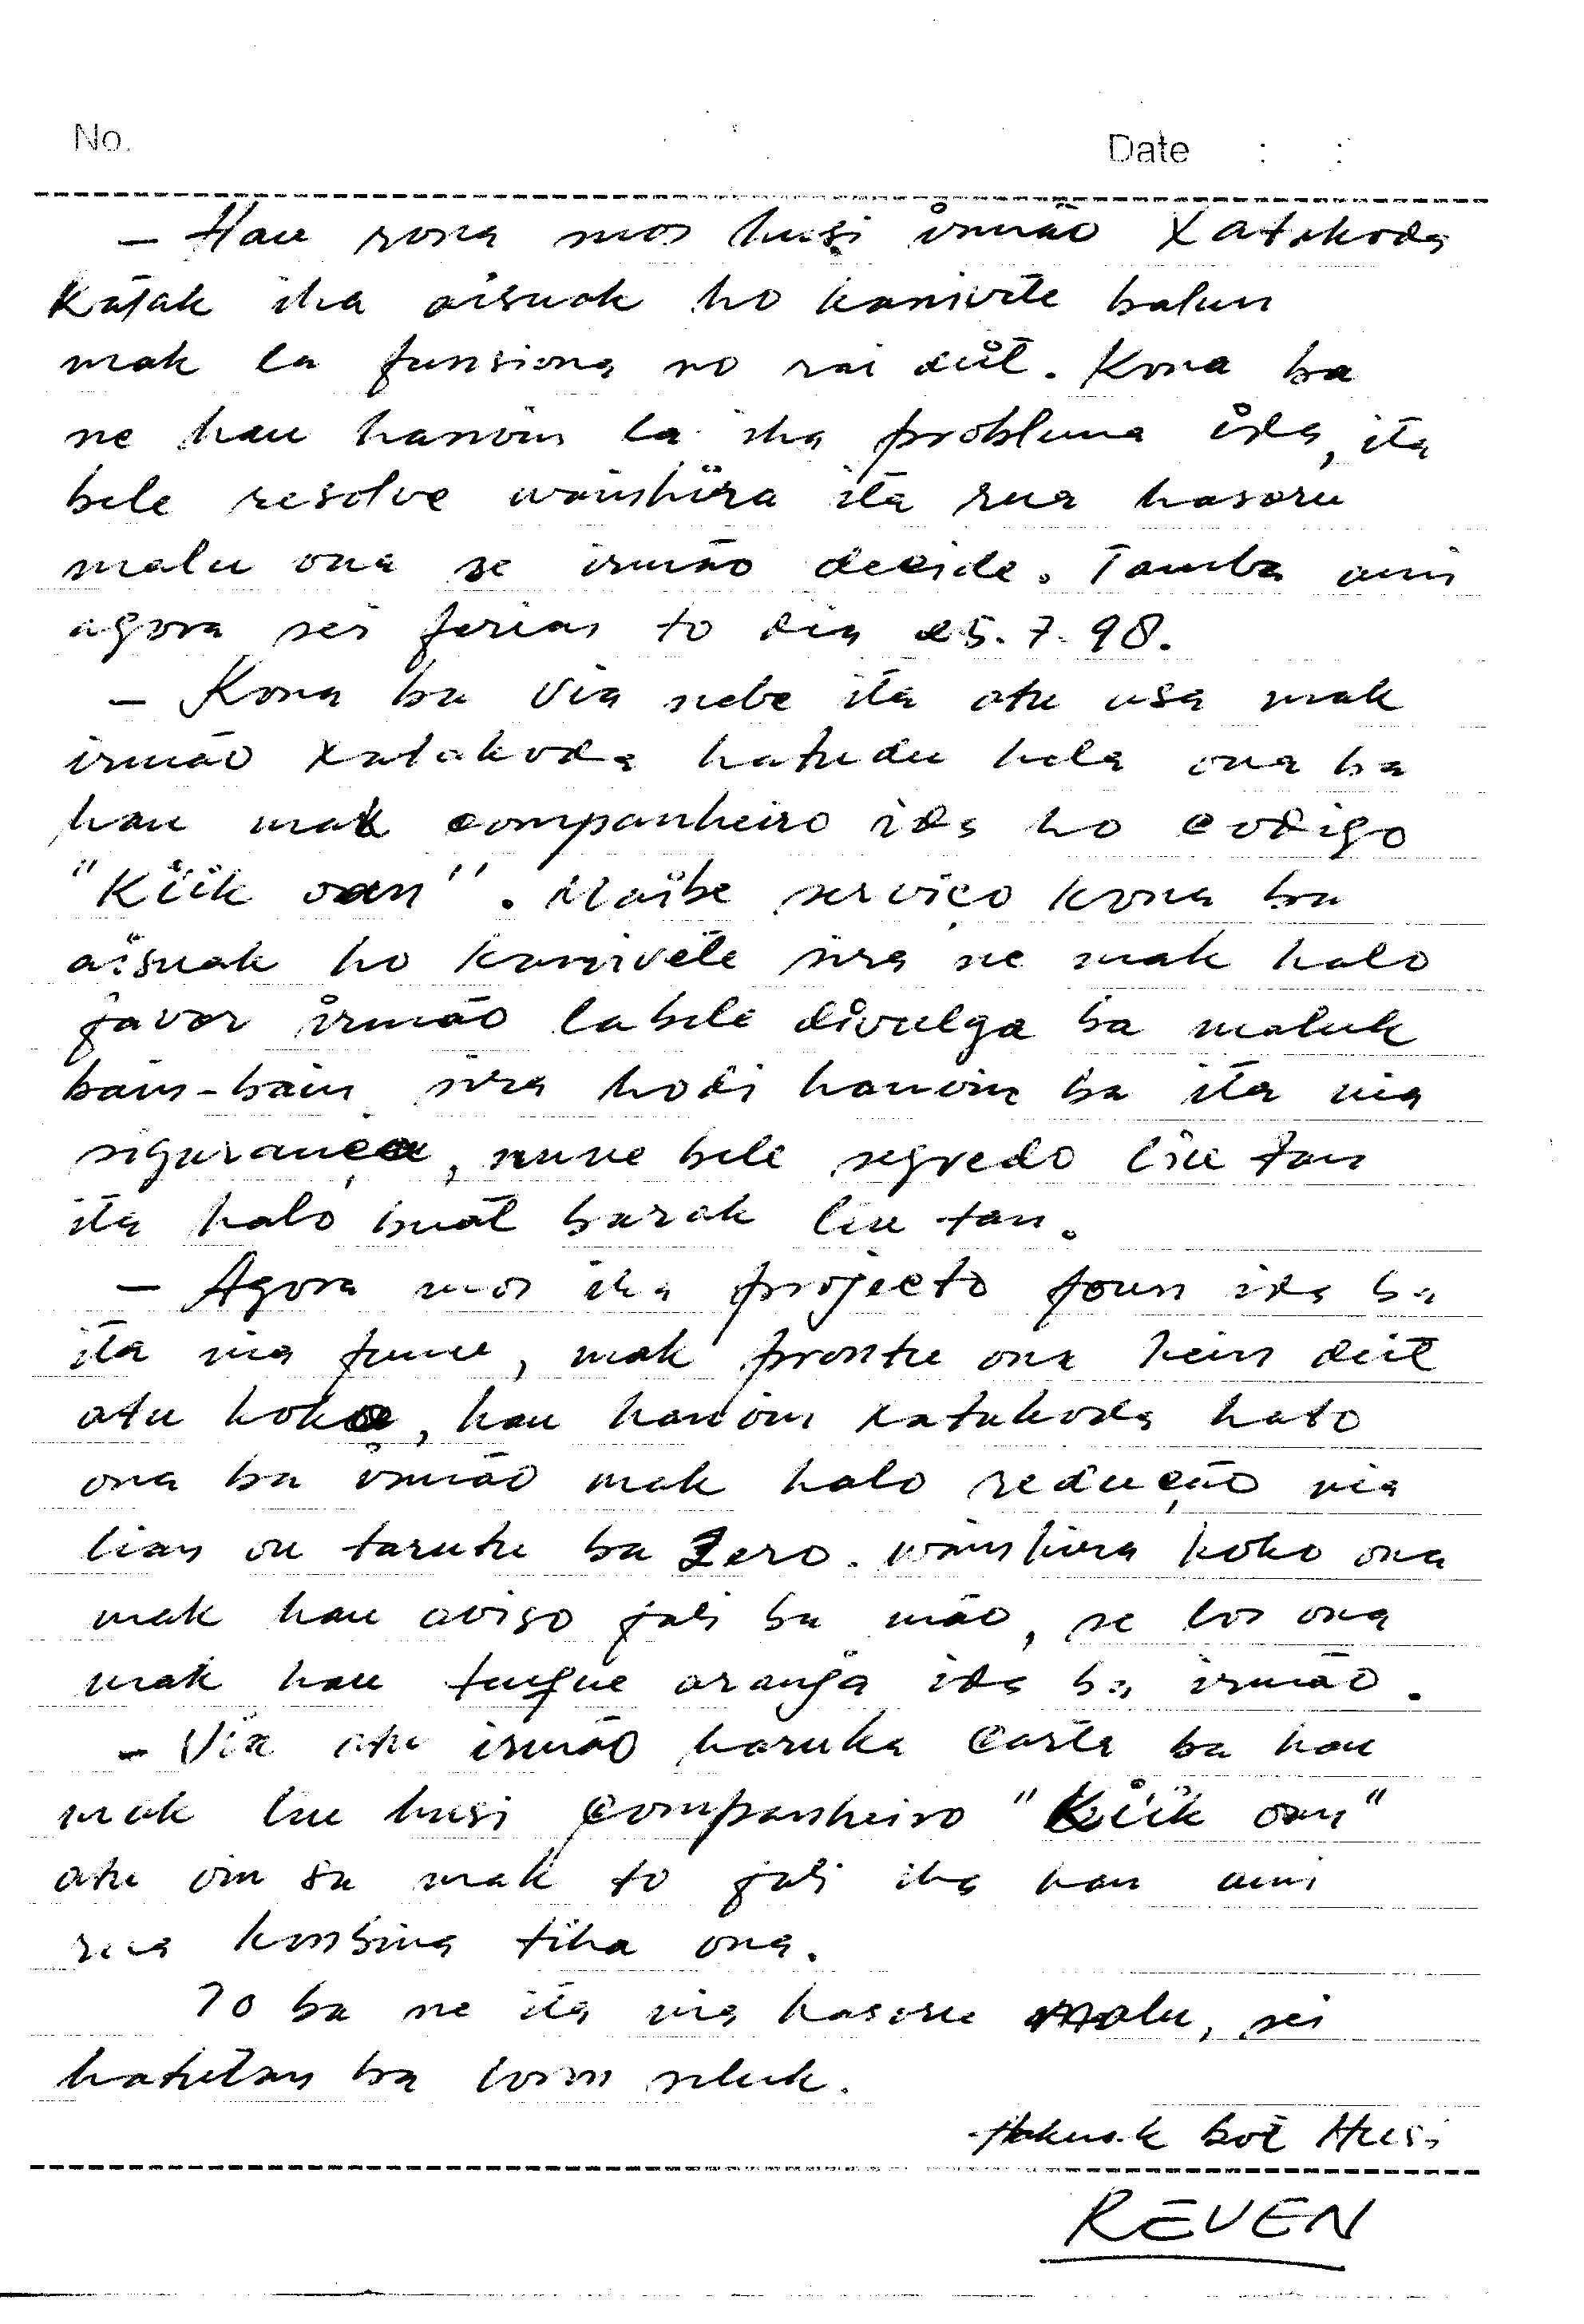 No. Date : :
- Hau rona mos husi irmão Xatakoda
Katak iha aisuak ho kanivite balun
mak la funsiona no rai diit. Kona ba
ne hau hanoin la iha problema ida, ita
bele resolve wainhira ita rua hasoru
malu ona se irmão decide. Tamba ami
agora sei ferias to dia 25.7.98.
- Kona ba Via nebe ita atu usa mak
irmão Xatakoda hatudu hela ona ba
hau mak companheiro ida ho codigo
"Kiik oan". Maibe serviço kona ba
aisuak ho kanivete sira ne mak halo
favor irmão labele divulga ba maluk
bain-bain sira hodi hanoin ba ita nia
sigurança, nune bele segredo liu tan
ita halo buat barak liu tan.
- Agora mos iha projecto foun ida ba
ita nia funu, mak prontu ona hein diit
atu koko, hau hanoin xatakoda hato
ona ba irmão mak halo redução nia
lian ou tarutu ba Zero. wainhira koko ona
mak hau aviso fali ba mão, se los ona
mak hau tugue aranja ida ba irmão.
- Via atu irmão haruka Carta ba hau
mak liu husi Companheiro "Kiik oan"
atu oin sa mak to fali iha hau ami
rua kombina tiha ona.
To ba ne ita nia hasoru malu, sei
hatutan ba loron seluk.
Hakuak bot Husi
REVEN